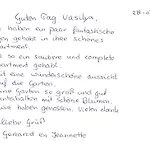 28-0
Guten Tag Vasilya,
haben an paar fantastische
gen gehabt in ihre schönes
partment.
so ein saubere und complete
partment gehabt.
it eine wunderschöne aussicht
auf die Garten.
eine Garten so groß und gut
unterhalten mit schöne Blumen,
wie haben genossen. Vielen danke
liebe Grüß
Gerhard en Jeannette